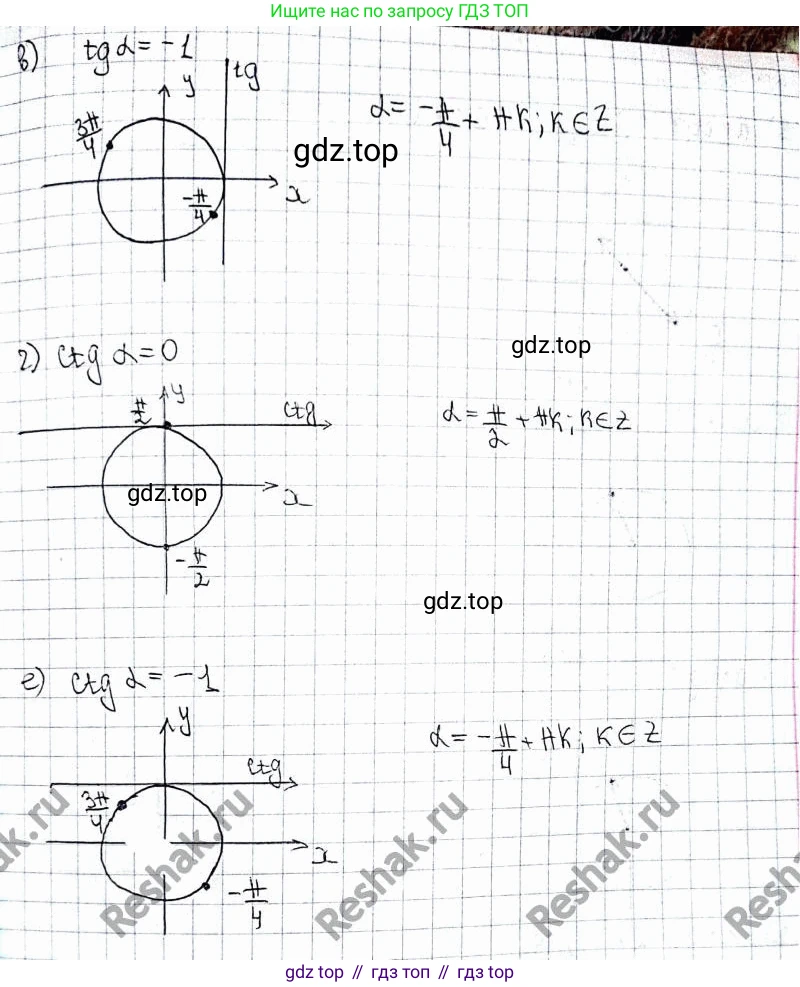 Ищите нас по запросу ГДЗ ТОП
в) tg α = -1
y
tg
3π/4
x
-π/4
α = -π/4 + πK; K∈Z
gdz.top
gdz.top
г) ctg α = 0
y
π/2
ctg
x
-π/2
α = π/2 + πK; K∈Z
gdz.top
gdz.top
е) ctg α = -1
y
ctg
3π/4
x
-π/4
α = -π/4 + πK; K∈Z
Reshak.ru
Reshak.ru
Reshak.ru
Reshak.ru
Reshak
gdz top // гдз топ // gdz top